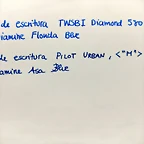 de escritura TWSBI Diamond 580
Diamine Florida Blue
de escritura PILOT URBAN, <"M">
iamine Asa Blue